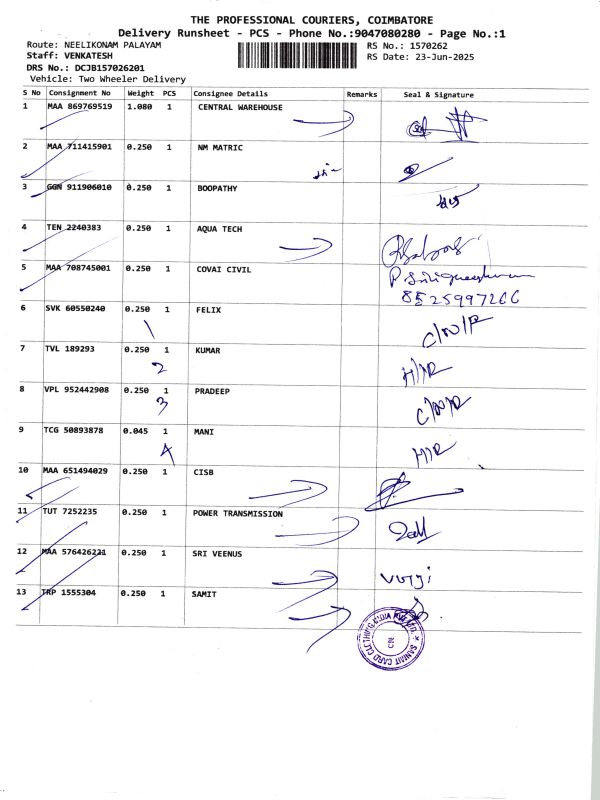 THE PROFESSIONAL COURIERS, COIMBATORE
Delivery Runsheet - PCS - Phone No.:9047080280 - Page No.:1
Route: NEELIKONAM PALAYAM RS No.: 1570262
Staff: VENKATESH RS Date: 23-Jun-2025
DRS No.: DCJB157026201
Vehicle: Two Wheeler Delivery
S No Consignment No Weight PCS Consignee Details Remarks Seal & Signature
1 MAA 869769519 1.080 1 CENTRAL WAREHOUSE
2 MAA 711415901 0.250 1 NM MATRIC
3 GGN 911906010 0.250 1 BOOPATHY
4 TEN 2240383 0.250 1 AQUA TECH
5 MAA 708745001 0.250 1 COVAI CIVIL
8525997266
6 SVK 60550240 0.250 1 FELIX C/N/R
1
7 TVL 189293 0.250 1 KUMAR H/R
2
8 VPL 952442908 0.250 1 PRADEEP C/N/R
3
9 TCG 50893878 0.045 1 MANI H/R
4
10 MAA 651494029 0.250 1 CISB
11 TUT 7252235 0.250 1 POWER TRANSMISSION
12 MAA 576426221 0.250 1 SRI VEENUS
13 TRP 1555304 0.250 1 SAMIT